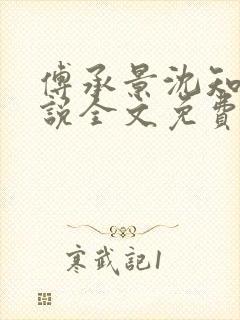 傅承景沈知
說全文免費
寒武記1